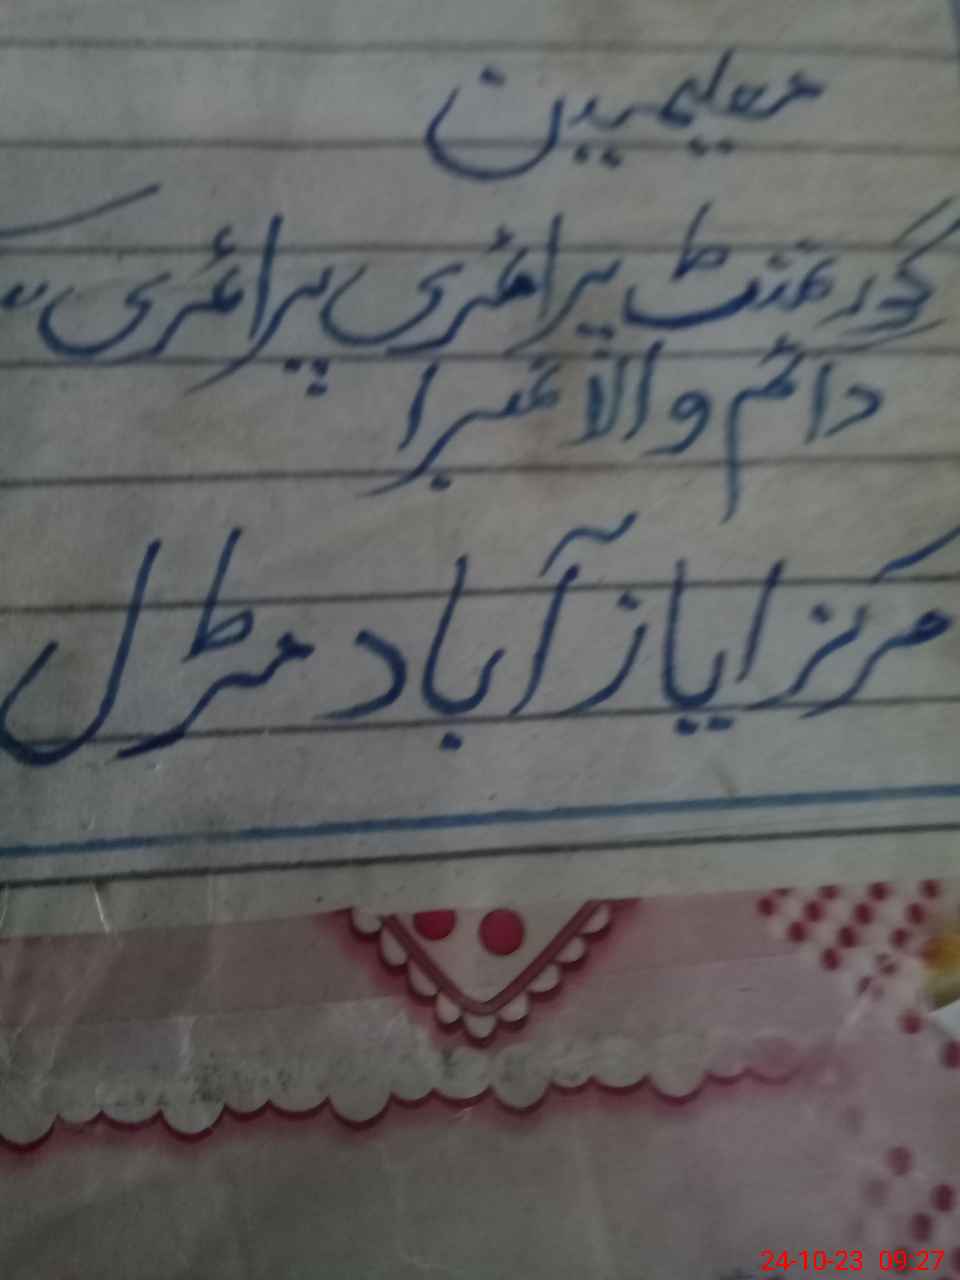 معلیمین
گورنمنٹ پرائمری پرائمری
دائم والا نمبرا
مرکز ایاز آباد مڑل
24-10-23 09:27